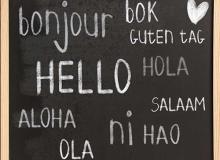 bonjour bok
GUTEN TAG
HELLO HOLA
ALOHA SALAAM
ni HAO
OLA